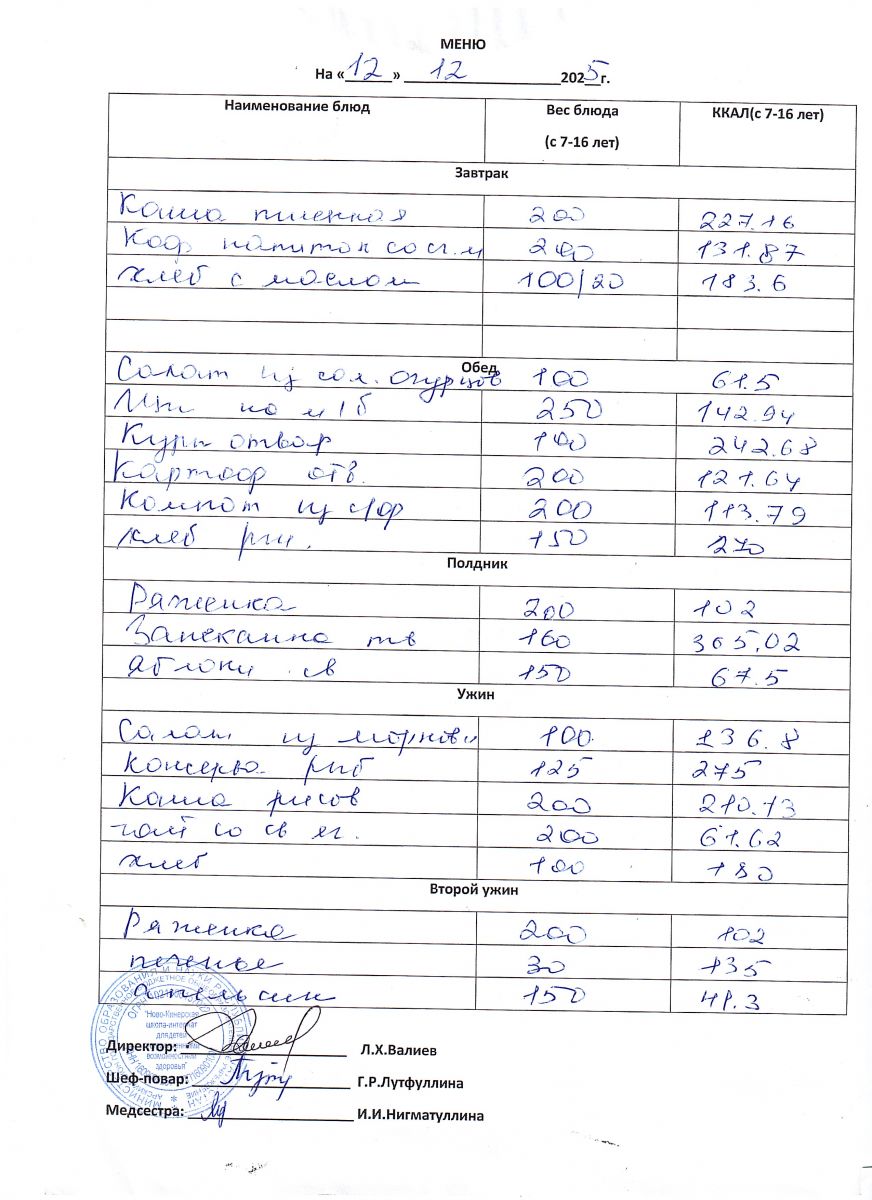 МЕНЮ
На «12» 12 2025г.
Наименование блюд Вес блюда (с 7-16 лет) ККАЛ(с 7-16 лет)
Завтрак
Каша пшенная 200 227.16
Коф напиток со сг.м 200 131.87
хлеб с маслом 100/20 183.6
Обед
Салат из сол. огурцов 100 61.5
Щи на м/б 250 142.94
Куры отвар 100 242.68
Картоф отв. 200 121.64
Компот из с/ф 200 113.79
хлеб рж. 150 270
Полдник
Ряженка 200 102
Запеканка тв 160 365.02
яблоки св 150 67.5
Ужин
Салат из моркови 100 136.8
Консерв. рыб 125 275
Каша рисов 200 210.13
чай со св яг. 200 61.62
хлеб 100 180
Второй ужин
Ряженка 200 102
печенье 30 135
апельсин 150 41.3
"Ново-Кинерская
школа-интернат
для детей
возможностями
здоровья"
Директор: Л.Х.Валиев
Шеф-повар: Г.Р.Лутфуллина
Медсестра: И.И.Нигматуллина